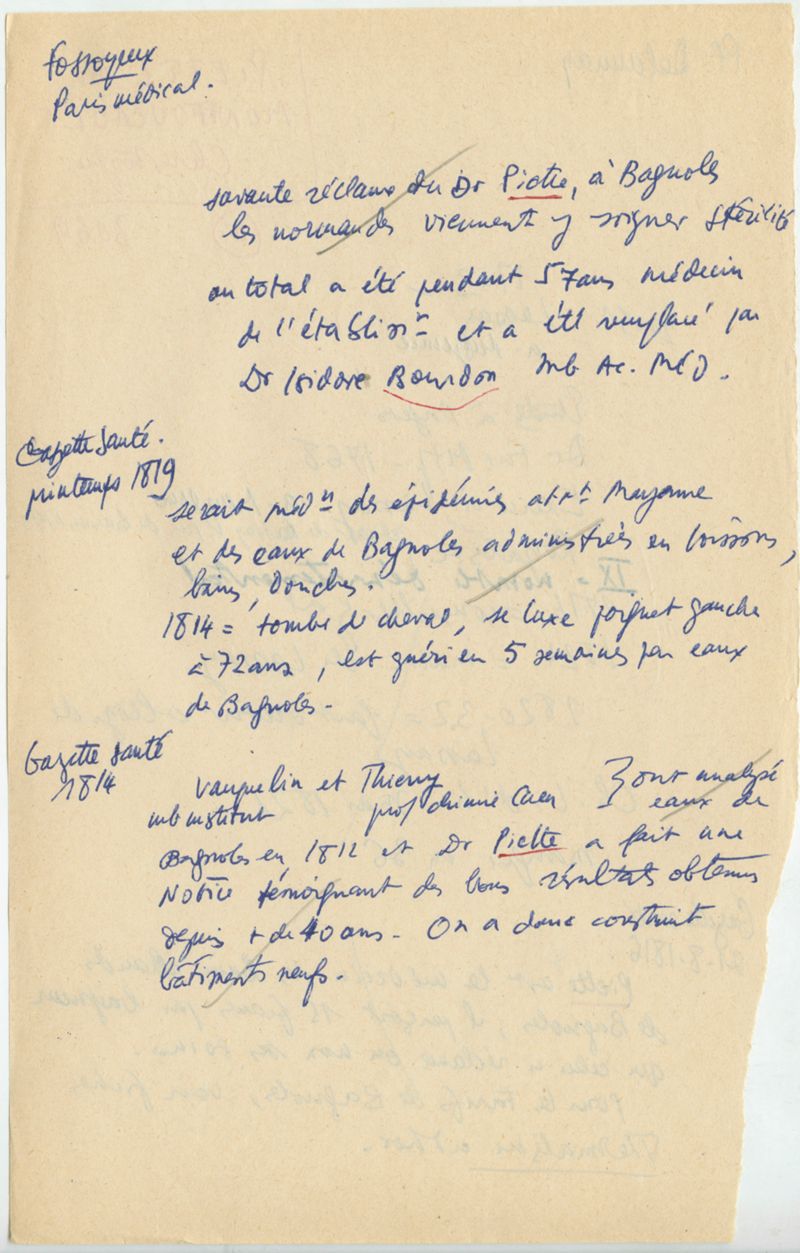 Fossoyeux
Paris médical.
savante réclame du Dr Piette, à Bagnoles
les normandes viennent y soigner stérilité
au total a été pendant 57 ans médecin
de l'établissnt et a été remplacé par
Dr Isidore Bourdon mb Ac. Méd.
Gazette Santé.
printemps 1819
serait médn des épidémies at Mayenne
et des eaux de Bagnoles administrées en boissons,
bains, douches.
1814 = tombe de cheval, se luxe poignet gauche
à 72 ans, est guéri en 5 semaines par eaux
de Bagnoles.
Gazette Santé
1814
Vauquelin et Thierry } ont analysé
mb institut prof chimie Caen eaux de
Bagnoles en 1812 et Dr Piette a fait une
Notice témoignant des bons résultats obtenus
depuis + de 40 ans. On a donc construit
bâtiments neufs.